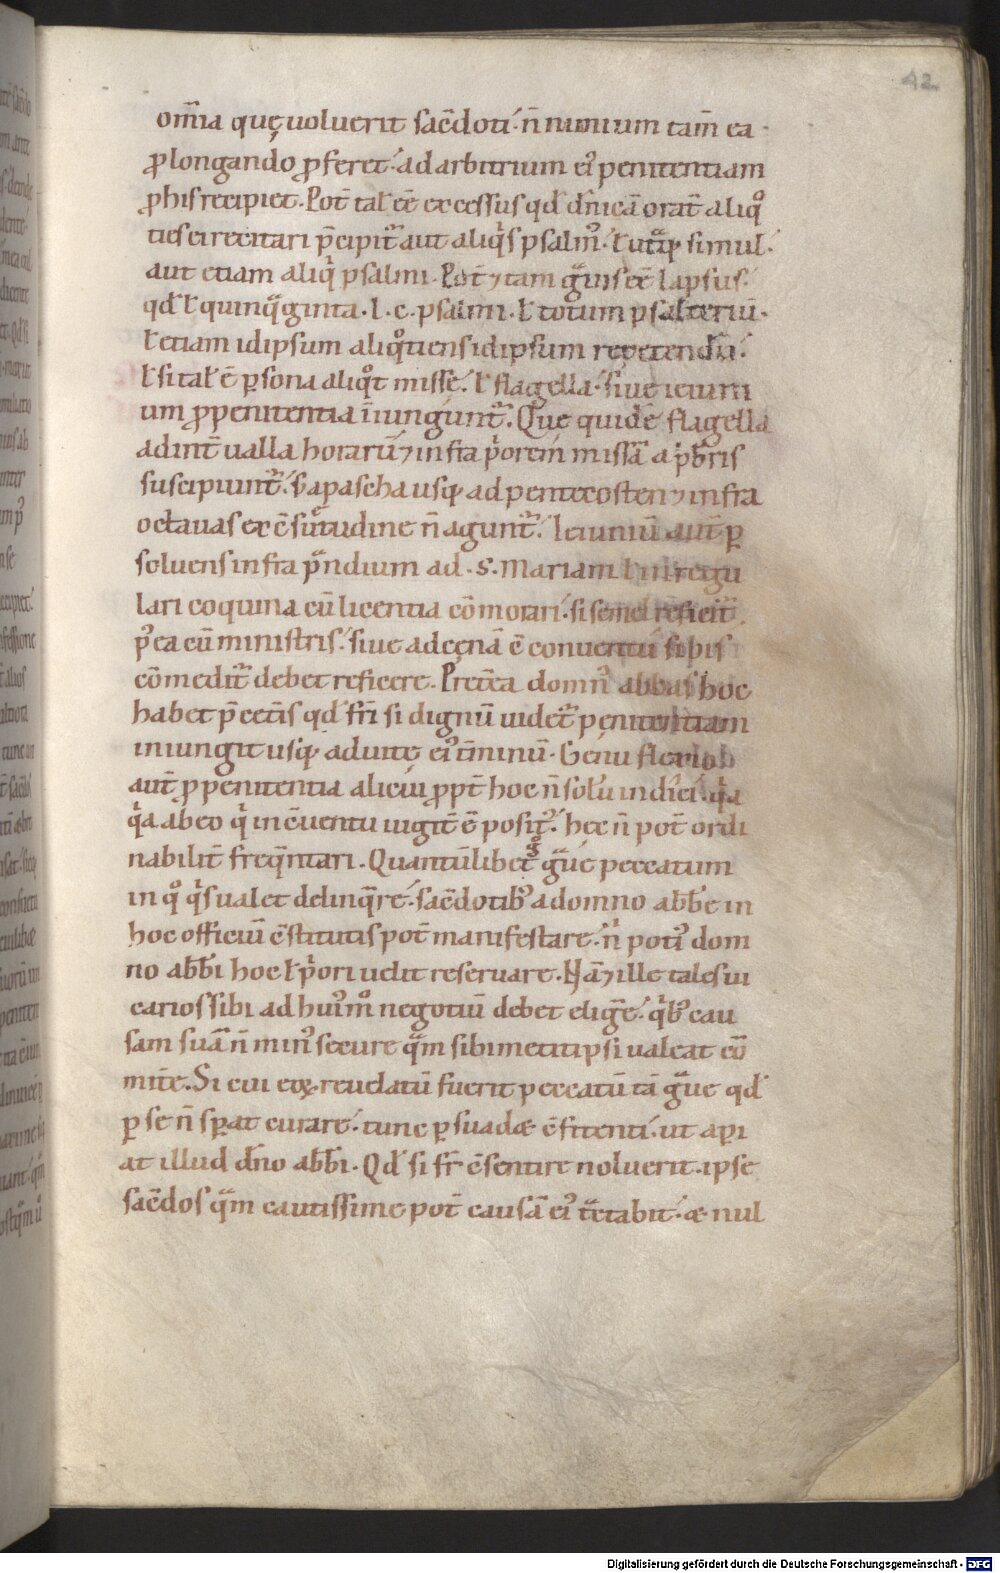 42
om̅ia quę uoluerit sac̅doti· n̅ nimium tam̅ ea
ꝓlongando ꝓferet· ad arbitrium ei᾿ penitentiam
ꝓ his recipiet. Pot̅ tal̅ e̅e̅ excessus qd̅ d̅nica̅ orat̅ aliqͦ
ties ei recitari p̅cipit᷑ aut aliqͥs psalm᾿· ł utͣq; simul·
aut etiam aliqͥ psalmi. Pot̅ ⁊ tam gͣuis e̅e̅ lapsus·
qd̅ ł quinqͣginta· l· c· psalmi· ł totum psalteriu̅·
ł etiam idipsum aliqͦtiens idipsum repetendu̅·
ł si tal̅ e̅ ꝑsona aliqͦt missę· ł flagella· siue ieiuni
um ꝓ penitentia iniungunt᷑. Que quide̅ flagella
ad int̅ualla horaru̅ ⁊ infra pͥorem missa̅ a p̅bris
suscipiunt᷑· s; a pascha usq; ad pentecosten ⁊ infra
octauas ex c̅suetudine n̅ agunt᷑. Ieiuniu̅ aut̅ ꝑ
soluens infra pͣndium ad· s· Mariam ł in regu
lari coquina cu̅ licentia co̅morari· si semel reficit᷑
p᾿ea cu̅ ministris· siue ad cęna̅ c̅ conuentu si bis
co̅medit᷑ debet reficere. Pret̅ea domn᾿ abbas hoc
habet p̅ cet̅is qd̅ fr̅i si dignu̅ uidet᷑ penitentiam
iniungit usq; ad uitę ei᾿ t̅minu̅. Genu flexio
aut̅ ꝓ penitentia alicui ꝓpt̅ hoc n̅ solu̅ indici· qͥa
qͥa ab eo qͥ in c̅uentu iugit̅ e̅ posit᾿· hec n̅ pot̅ ordi
nabilit̅ freqͣntari. Quantu̅libet g gͣue peccatum
in qͦ qͥs ualet delinqͣre· sac̅dotib᾿ a domno abb̅e in
hoc officiu̅ c̅stitutis pot̅ manifestare· nͥ poti᾿ dom
no abb̅i hoc ł pͥori uelit reseruare. Na̅ ⁊ ille tales ui
carios sibi ad hui᾿mͦ negotiu̅ debet elig̅e· qͥb᾿ cau
sam sua̅ n̅ min᾿ secure qͣm sibimetipsi ualeat co̅
mit̅e. Si cui eoꝝ reuelatu̅ fuerit peccatu̅ ta̅ gͣue qd̅
ꝑ se n̅ sꝑat curare· tunc ꝑsuadæ c̅fitenti· ut aꝑi
at illud d̅no abb̅i. Qd̅ si fr̅ c̅sentire noluerit· ipse
sac̅dos qͣm cautissime pot̅ causa̅ ei᾿ tͣctabit· æ nul
Digitalisierung gefördert durch die Deutsche Forschungsgemeinschaft - DFG